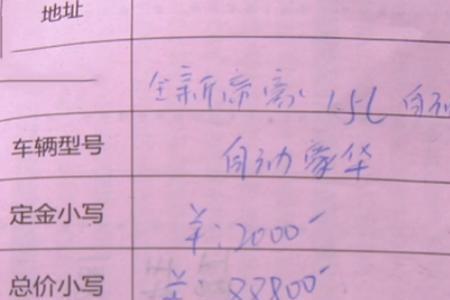 地址
全新帝豪 1.5L 自动
车辆型号 自动豪华
定金小写 ¥:2000-
总价小写 ¥:88800-